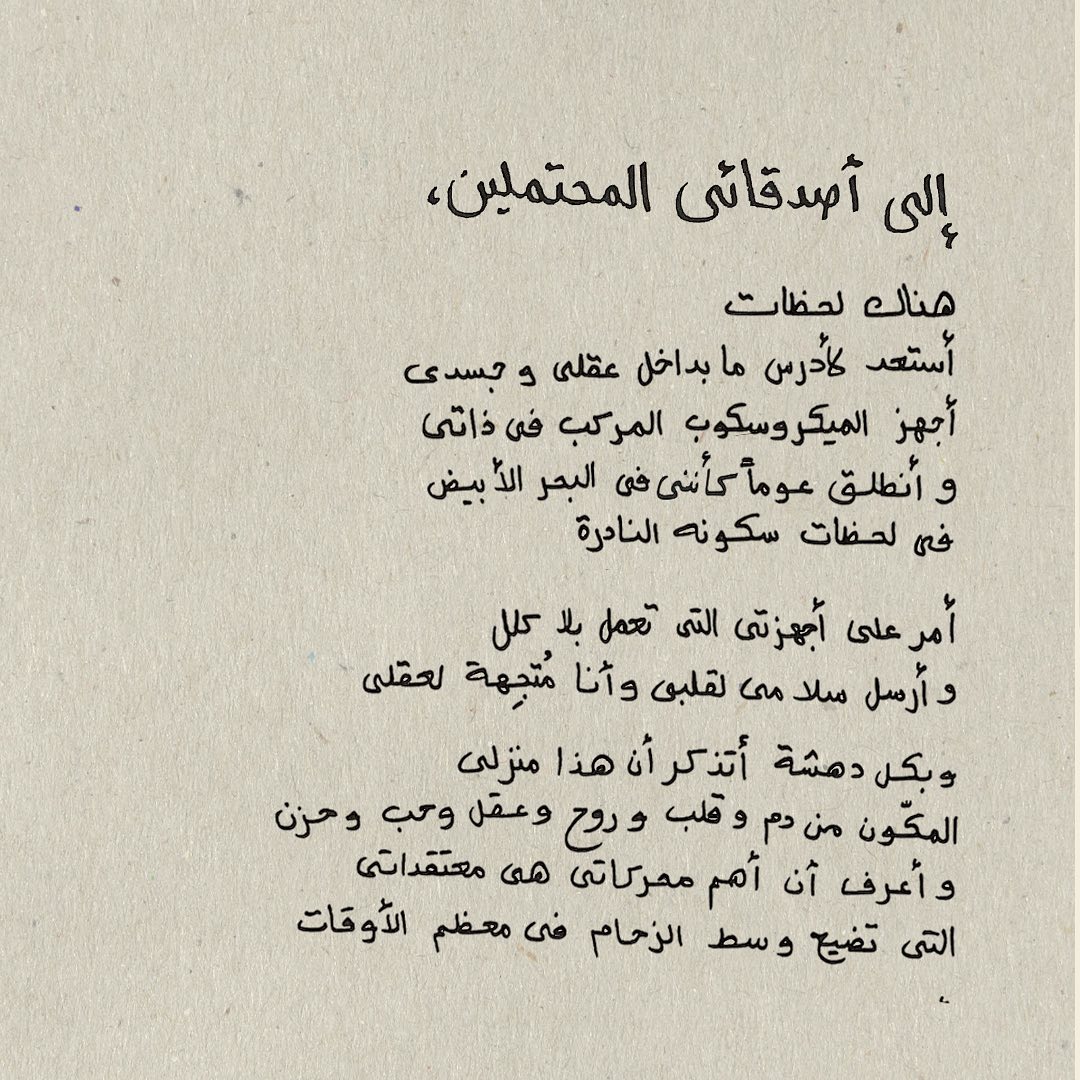 إلى أصدقائى المحتملين،
هناك لحظات
أستعد لأدرس ما بداخل عقلى و جسدى
أجهز الميكروسكوب المركب فى ذاتى
و أنطلق عوماً كأننى فى البحر الأبيض
فى لحظات سكونه النادرة
أمر على أجهزتى التى تعمل بلا كلل
و أرسل سلامى لقلبى وأنا مُتجِهة لعقلى
وبكل دهشة أتذكر أن هذا منزلى
المكّون من دم و قلب و روح و عقل وحب وحزن
و أعرف أن أهم محركاتى هى معتقداتى
التى تضيع وسط الزحام فى معظم الأوقات